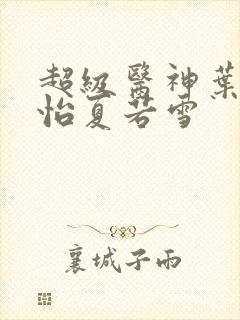 超級醫神葉
怡夏若雪
襄城子雨